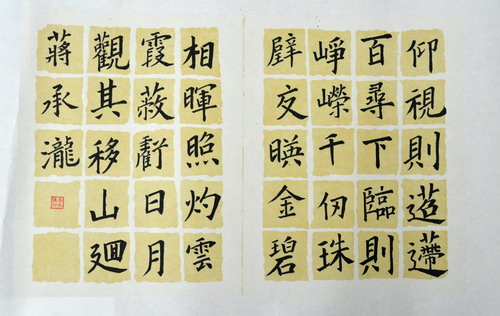 仰視則迢遰
百尋下臨則
崢嶸千仞珠
壁交暎金碧
相暉照灼雲
霞蔽虧日月
觀其移山廻
蔣承瀧